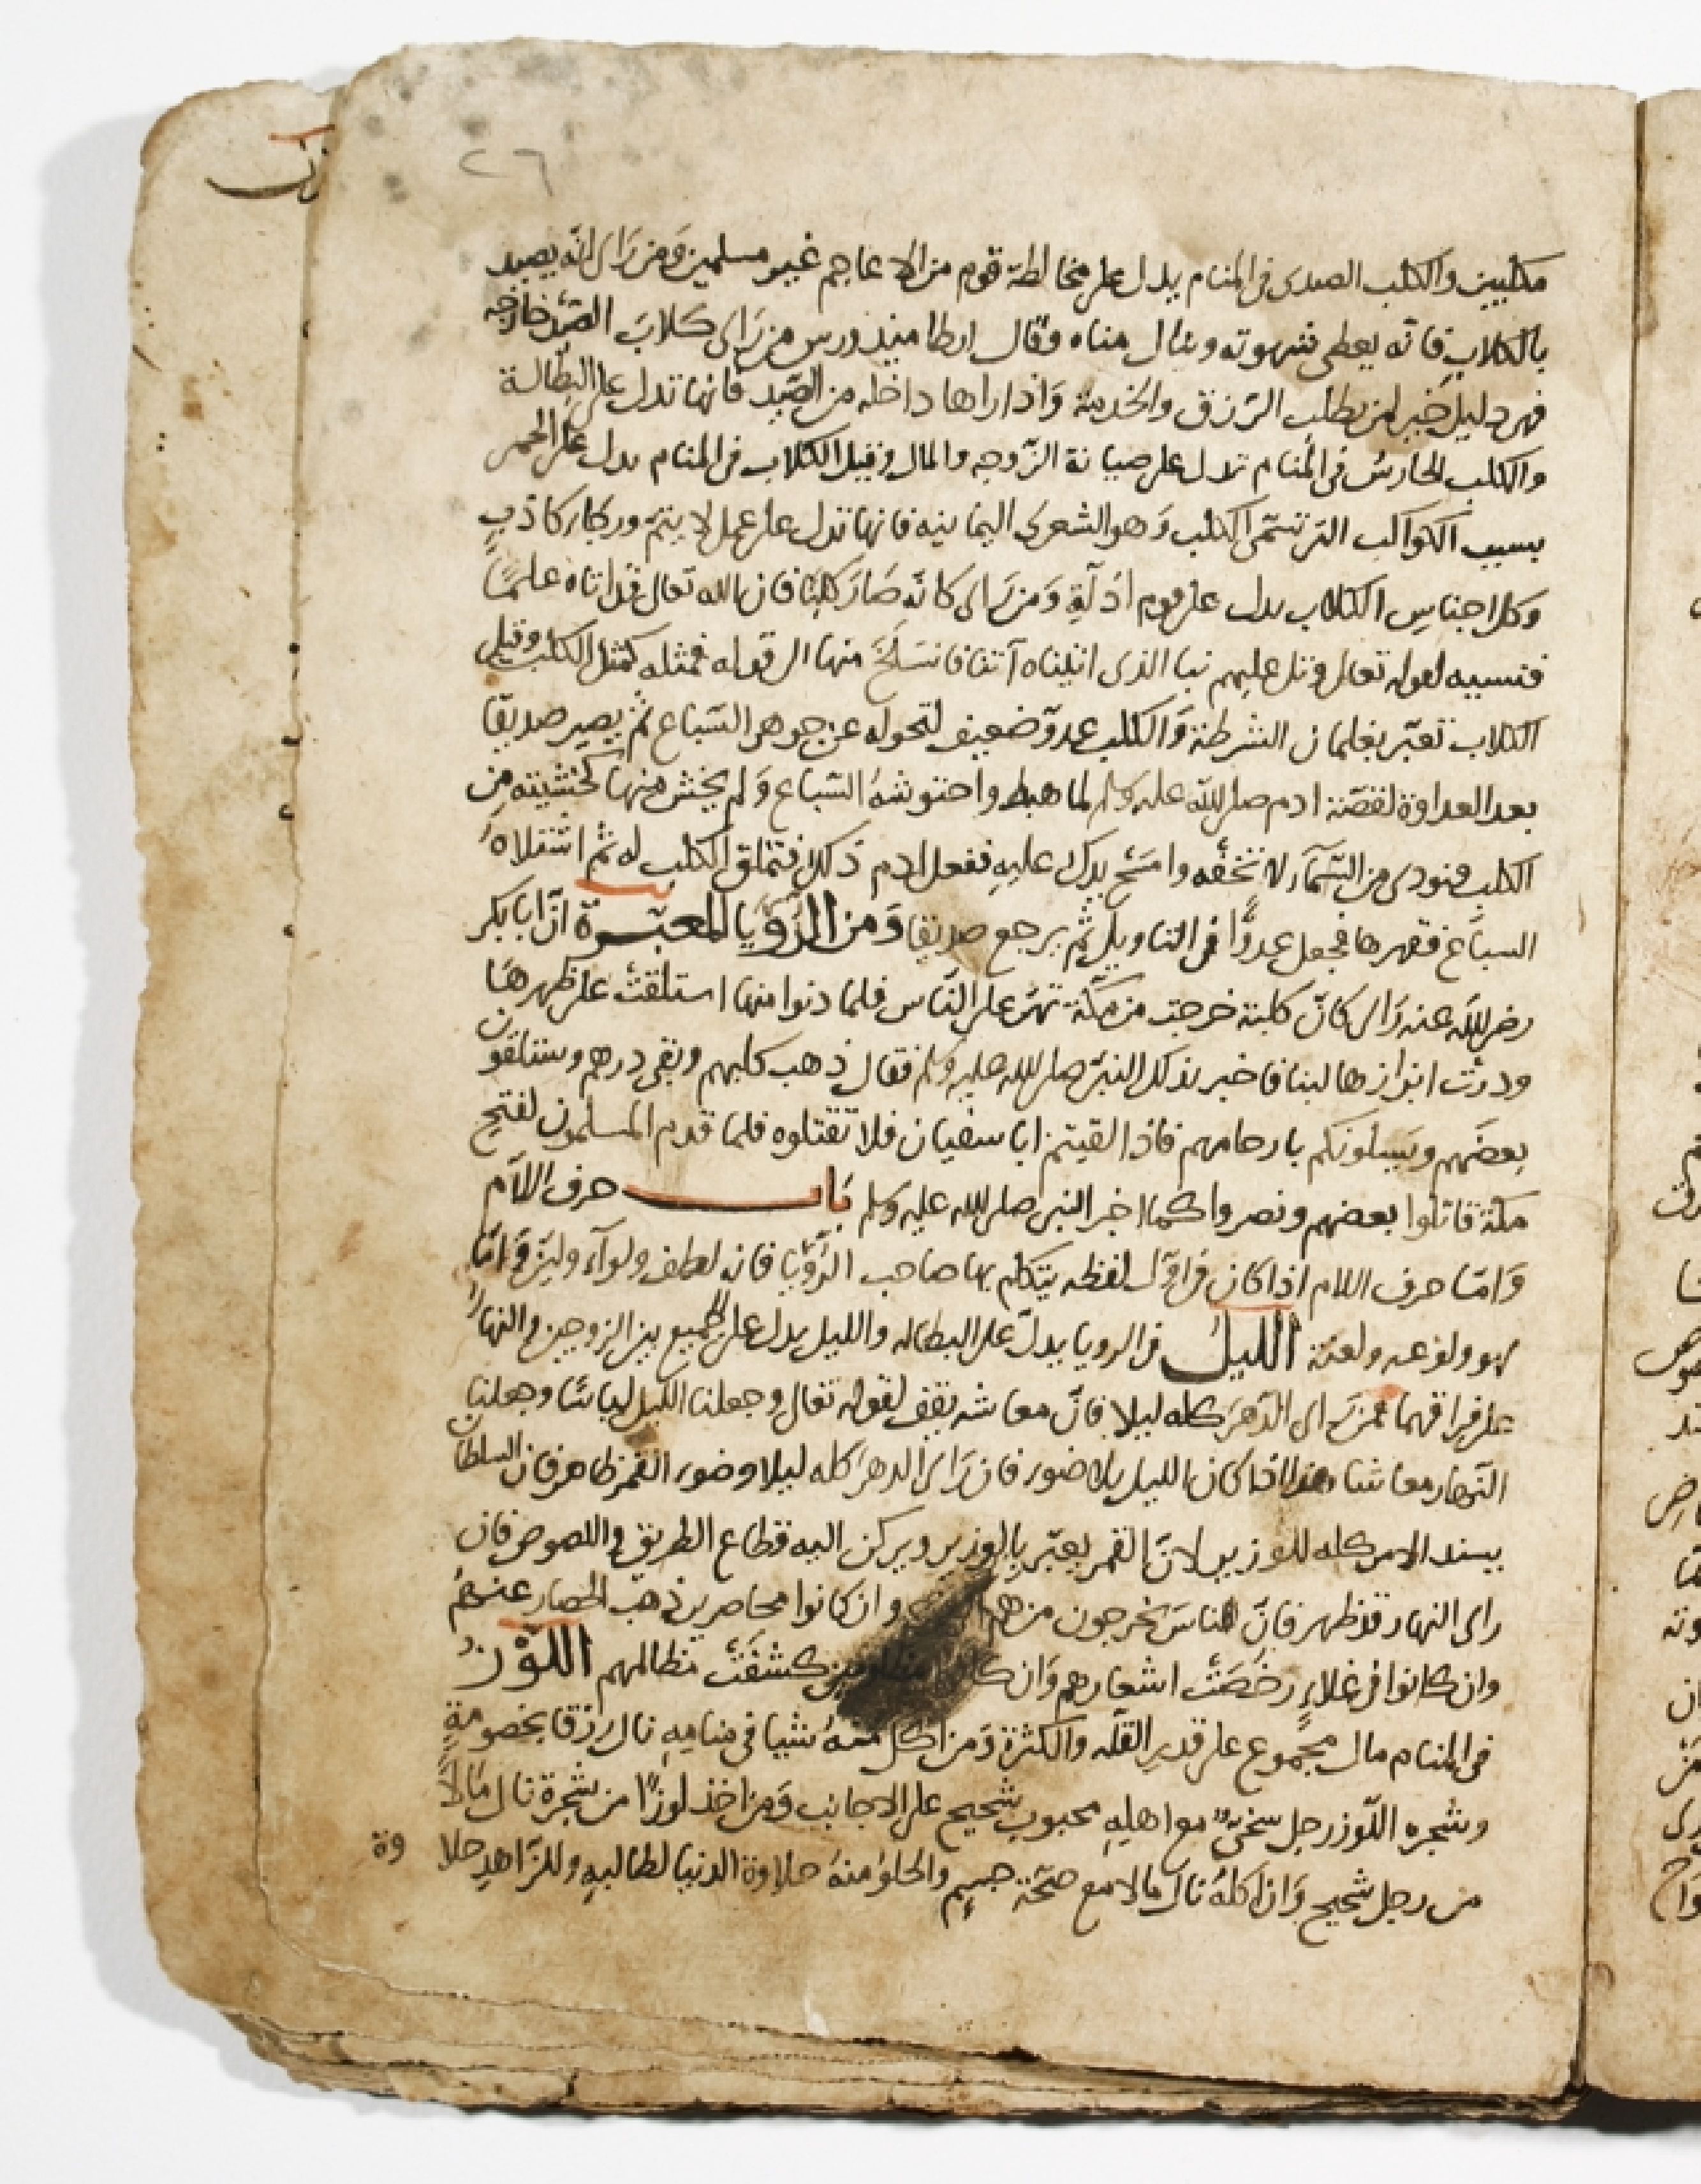 ٢٦
مكلبين والكلب الصيدى فى المنام يدل على مخالطة قوم من الاعاجم غير مسلمين وَمن رَاى انه يصيد
بالكلاب فانه يعطى شهوته وينال مناه وقال ارطاميدورس من رَاى كلابَ الصَّيد خارجه
فهى دليل خير لمن يطلب الرزق والخدمة وَاذا راها داخله من الصَّيد فانها تدل على البطالة
والكلب الحارس فى المنام تدل على صيانة الزوجه والمال وقيل الكلاب فى المنام يدل على الحمى
بسبب الكواكب التى تسمّى الكلب وَهو الشعرى اليمانيه فانها تدل على عمل لا يتم
وكل اجناس الكلاب يدل على قوم اذلّةٍ وَمن رَاى كانه صَارَ كلبًا فان الله تعالى قد اتاه علمًا
فنسيه لقوله تعالى وتل عليهم نبا الذى اتيناه آتنا فانسَلَخَ منها الى قوله فمثله كمثل الكلب وقيل
الكلاب تعبّر بغلمان الشرطة وَالكلب عدوّ ضعيف لتحوله عن جوهر السّباع ثم يصير صديقا
بعد العداوة لقصّة ادم صلى الله عليه وسلم لما هبط واحتوشهُ السّباع وَلم يخش منها كخشيته مِن
الكلب فنودى من السّمآءِ لا تخفه وامسَح يدك عليهِ ففعل ادم ذلك فتملق الكلب له ثم اشلاهُ
السباع فقهرها فجعل عدوًّا فى التاويل ثم يرجع صديقا وَمن الرؤيا المعبّرة انّ ابا بكر
رضى الله عنه رَاى كانّ كلبة خرجت من مكّة تهرّ على النّاس فلما دنوا منها استلقت على ظهرها
ودرّت ابزازها لبنا فاخبر بذلك النبىّ صلى الله عليه وسلم فقال ذهب كلبهم وبقى درهم وستلقون
بعضَهم ويَسِلونكم بارحامهم فاذا لقيتم ابا سفيان فلا تقتلوه فلما قدم المسلمون لفتح
مكة قاتلوا بعضهم ونصروا كما اخبر النبى صلى الله عليه وسلم بَاب حرف اللام
وَامّا حرف اللام اذا كان فى اوّل لفظه يتكلم بها صاحب الرُّؤيا فانه لطف ولوآء
لهو ولوعه ولعنة الليل فى الرويا يدلّ على البطاله والليل يدل على الجميع بين الزوجين والنهارُ
على فراقهما فمن رَاى الدّهرَ كله ليلا فانّ معاشه يقف لقوله تعالى وجعلنا الليل لباسًا وجعلنا
النّهار معاشا هذا اذا كان الليل بلا ضور فان رَاى الدهر كله ليلا وضور القمر ظاهر فان السلطان
يسند الامر كله للوزير لانّ القمر يعبّر بالوزير ويركن اليه قطاع الطريق واللصوص فان
راى النهار قد ظهر فانّ الناسَ يخرجون من وان كانوا محاصرين ذهب الحصار عنهمُ
وان كانوا فى غلاءٍ رخصَت اشعارهم وَان كانوا كشفت مظالمهم اللّوْزُ
فى المنام مال مجموع على قدرِ القلّه والكثرة وَمن اكل منهُ شيا فى منامِهِ نال رزقا بخصومةٍ
وشجره اللّوز رجل سخىّ مع اهلهِ محبوب شحيح على الاجانب وَمن اخذ لوزًا من شجرة نال مَالًا
من رجل شحيح وَان اكلهُ نال مالا مع صحّة جسمٍ والحلوُ منهُ حلاوة الدنيا لطالبهِ وللزّاهدِ حلا
وة